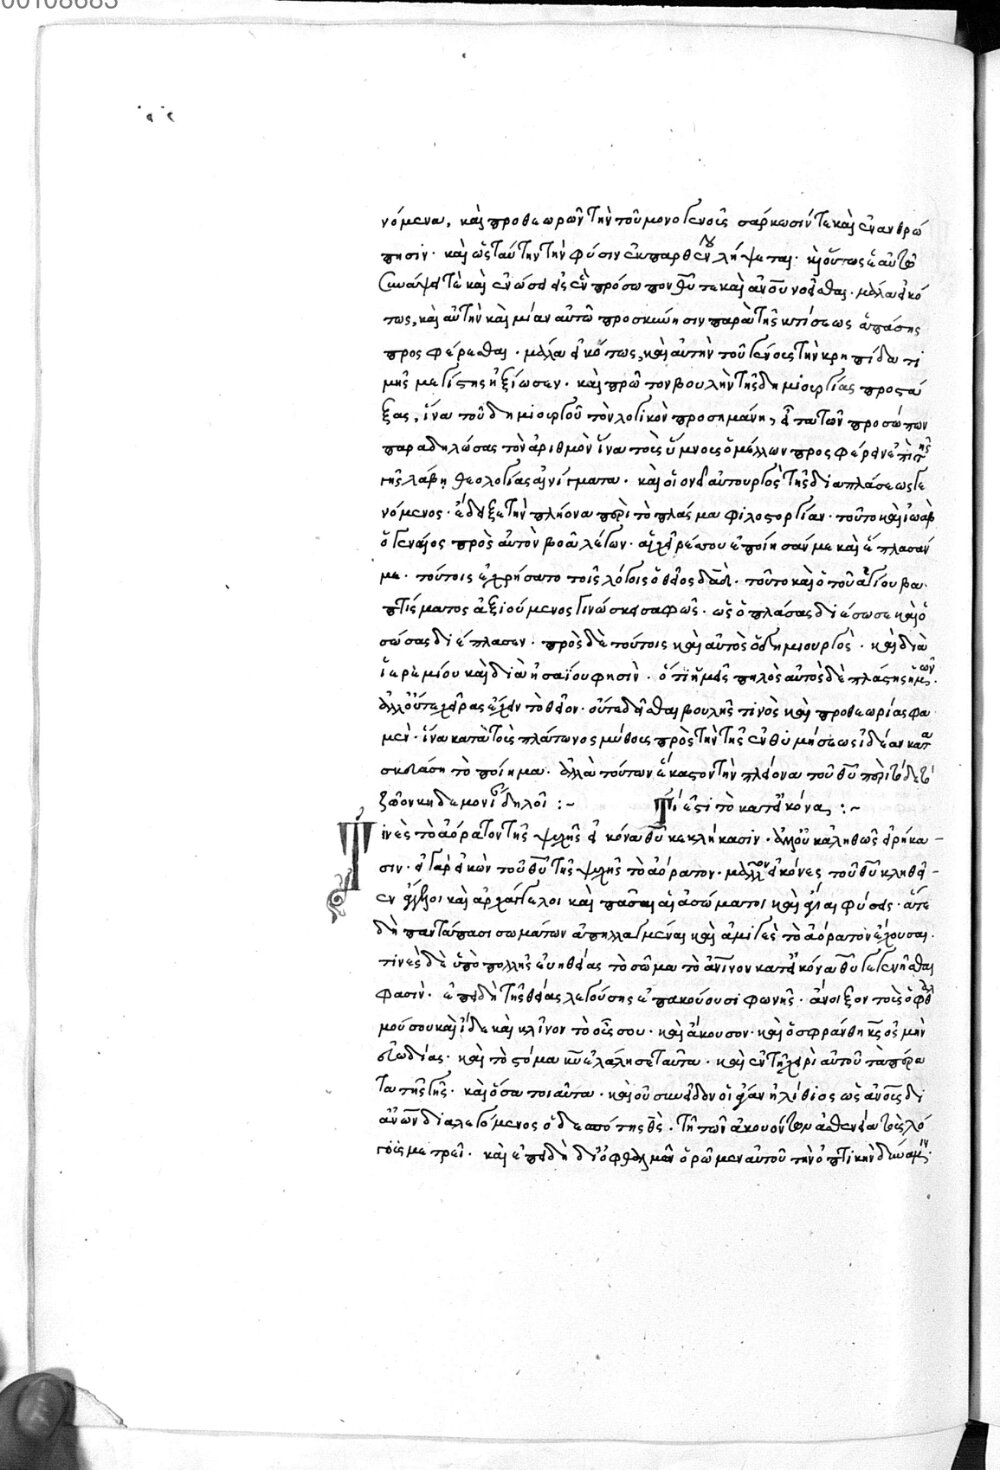 00108683
νόμενα, καὶ προθεωρῶν τὴν τοῦ μονογενοῦς σάρκωσίν τε καὶ ἐνανθρώ
πησιν· καὶ ὡς ταύτην τὴν φύσιν ἐκ παρθένου λήψεται· καὶ οὕτως ἑαυτῷ
συνάψει τὲ καὶ ἑνώσει ὡς ἓν πρόσωπον θῦ τε καὶ ἀνοῦ νοεῖσθαι· μάλα εἰκό
τως, καὶ αὐτὴν καὶ μίαν αὐτῷ προσκύνησιν παρὰ τῆς κτίσεως ἁπάσης
προσφέρεσθαι· μάλα εἰκότως, καὶ αὐτὴν τοῦ γένους τὴν κρηπίδα τι
μῆς μεγίστης ἠξίωσεν· καὶ πρῶτον βουλὴν τῆς δημιουργίας προστά
ξας, ἵνα τοῦ δημιουργοῦ τὸν λογικὸν προσημάνῃ, εἶτα τῶν προσώπων
παραδηλώσας τὸν ἀριθμὸν ἵνα τοὺς ὕμνους ὁ μέλλων προσφέρειν ἐπὶ τῆς
γῆς λάβῃ θεολογίας αἰνίγματα· καὶ οἱονεὶ αὐτουργὸς τῆς διαπλάσεως γε
νόμενος· ἔδειξε τὴν πλείονα περὶ τὸ πλάσμα φιλοστοργίαν· τοῦτο καὶ ἰὼβ
ὁ γενναῖος πρὸς αὐτὸν βοᾷ λέγων· αἱ χεῖρές σου ἐποίησάν με καὶ ἔπλασάν
με· τούτοις ἐχρήσατο τοῖς λόγοις ὁ θεῖος δαδ· τοῦτο καὶ ὁ τοῦ ἁγίου βα
πτίσματος ἀξιούμενος γινώσκει σαφῶς· ὡς ὁ πλάσας διέσωσε καὶ ὁ
σώσας διέπλασεν· πρὸς δὲ τούτοις καὶ αὐτὸς ὁ δημιουργὸς· καὶ διὰ
ἱερεμίου καὶ διὰ ἠσαΐου φησὶν· ὅτι ἡμεῖς πηλὸς αὐτὸς δὲ πλάστης ἡμῶν·
ἀλλ' οὔτε χεῖρας ἔχειν τὸ θεῖον· οὔτε δεῖσθαι βουλῆς τινὸς καὶ προθεωρίας φα
μὲν· ἵνα κατὰ τοὺς πλάτωνος μύθους πρὸς τὴν τῆς ἐνθυμήσεως ἰδέαν κατα
σκευάσῃ τὸ ποίημα· ἀλλὰ τούτων ἕκαστον τὴν πλείονα τοῦ θῦ περὶ τόδε τὸ
ζῶον κηδεμονίαν δηλοῖ :~ Τί ἐστὶ τὸ κατ' εἰκόνα; :~
Τινὲς τὸ ἀόρατον τῆς ψυχῆς εἰκόνα θῦ κεκλήκασιν· ἀλλ' οὐκ ἀληθῶς εἰρήκα-
σιν· εἰ γὰρ εἰκὼν τοῦ θῦ τῆς ψυχῆς τὸ ἀόρατον· μᾶλλον εἰκόνες τοῦ θῦ κληθεῖ-
εν ἄγγελοι καὶ ἀρχάγγελοι καὶ πᾶσαι αἱ ἀσώματοι καὶ ἅγιαι φύσεις· ἅτε
δὴ παντάπασι σωμάτων ἀπηλλαγμέναι καὶ ἀμιγὲς τὸ ἀόρατον ἔχουσαι·
τινὲς δὲ ὑπὸ πολλῆς εὐηθείας τὸ σῶμα τὸ ἀνινον κατ' εἰκόνα θῦ γεγενῆσθαι
φασὶν· ἐπειδὴ τῆς θείας λεγούσης ἐπακούουσι φωνῆς· ἄνοιξον τοὺς ὀφθαλ
μούς σου καὶ ἴδε καὶ κλῖνον τὸ οὖς σου· καὶ ἄκουσον· καὶ ὠσφράνθη κς ὀσμὴν
εὐωδίας· καὶ τὸ στόμα κῦ ἐλάλησε ταῦτα· καὶ ἐν τῇ χειρὶ αὐτοῦ τὰ πέρα
τα τῆς γῆς· καὶ ὅσα τοιαῦτα· καὶ οὐ συνεῖδον οἱ ἄγαν ἠλίθιοι ὡς ἀνοις δι
ἀνων διαλεγόμενος ὁ δεσπότης θς· τῇ τῶν ἀκουόντων ἀσθενείᾳ τοὺς λό
γους μετρεῖ· καὶ ἐπειδὴ δι' ὀφθαλμῶν ὁρῶμεν αὐτοῦ τὴν ὀπτικὴν δύναμιν·